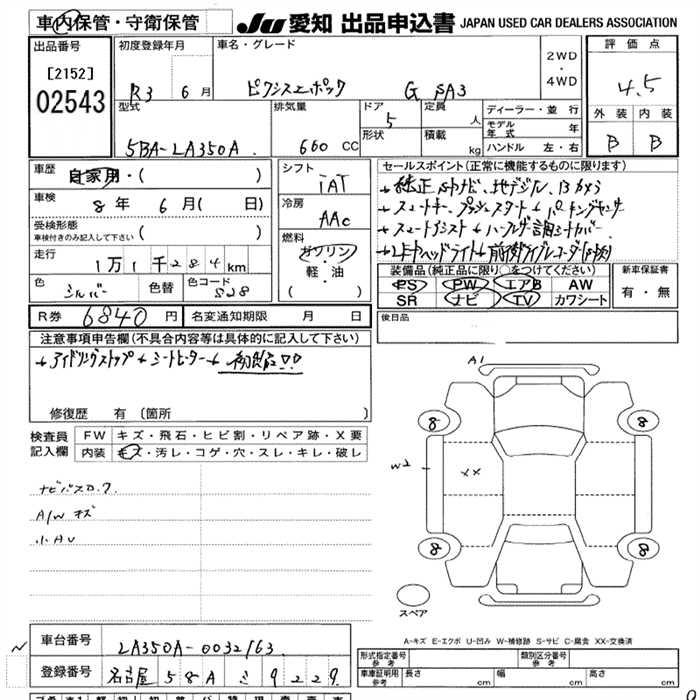 車内保管・守衛保管
JU 愛知 出品申込書 JAPAN USED CAR DEALERS ASSOCIATION
出品番号
[2152]
02543
初度登録年月
R3 6 月
車名・グレード
ピクシスエポック G SA3
2WD
・
4WD
評価点
4.5
外装 内装
B B
型式
5BA-LA350A
排気量
660 CC
ドア
5
形状
定員
人
積載
kg
ディーラー・並行
モデル年式 年
ハンドル 左・右
車歴
自家用・( )
車検
8 年 6 月( 日)
受検形態
車検付きのみ記入して下さい ( )
走行
1 万 1 千 284 km
色
シルバー
色替
色コード
S28
シフト
IAT
冷房
AAC
燃料
ガソリン
・
軽・油
( )
セールスポイント(正常に機能するものに限ります)
装備品(純正品に限り○をつけてください)
PS PW エアB AW
SR ナビ TV カワシート
新車保証書
有・無
R券 6840 円
名変通知期限 月 日
後日品
注意事項申告欄(不具合内容等は具体的に記入して下さい)
アイドリングストップ シートヒーター
修復歴 有 (箇所 )
検査員
記入欄
FW キズ・飛石・ヒビ割・リペア跡・X要
内装 キズ・汚レ・コゲ・穴・スレ・キレ・破レ
ナビパスロック
A/W キズ
小AU
A1
8 8
W2 XX
8 8
スペア
A-キズ E-エクボ U-凹み W-補修跡 S-サビ C-腐食 XX-交換済
車台番号
LA350A-0032163
登録番号
名古屋 58A ミ 9229
形式指定番号
参考
類別区分番号
参考
車庫証明用
参考
長さ cm 幅 cm 高さ cm